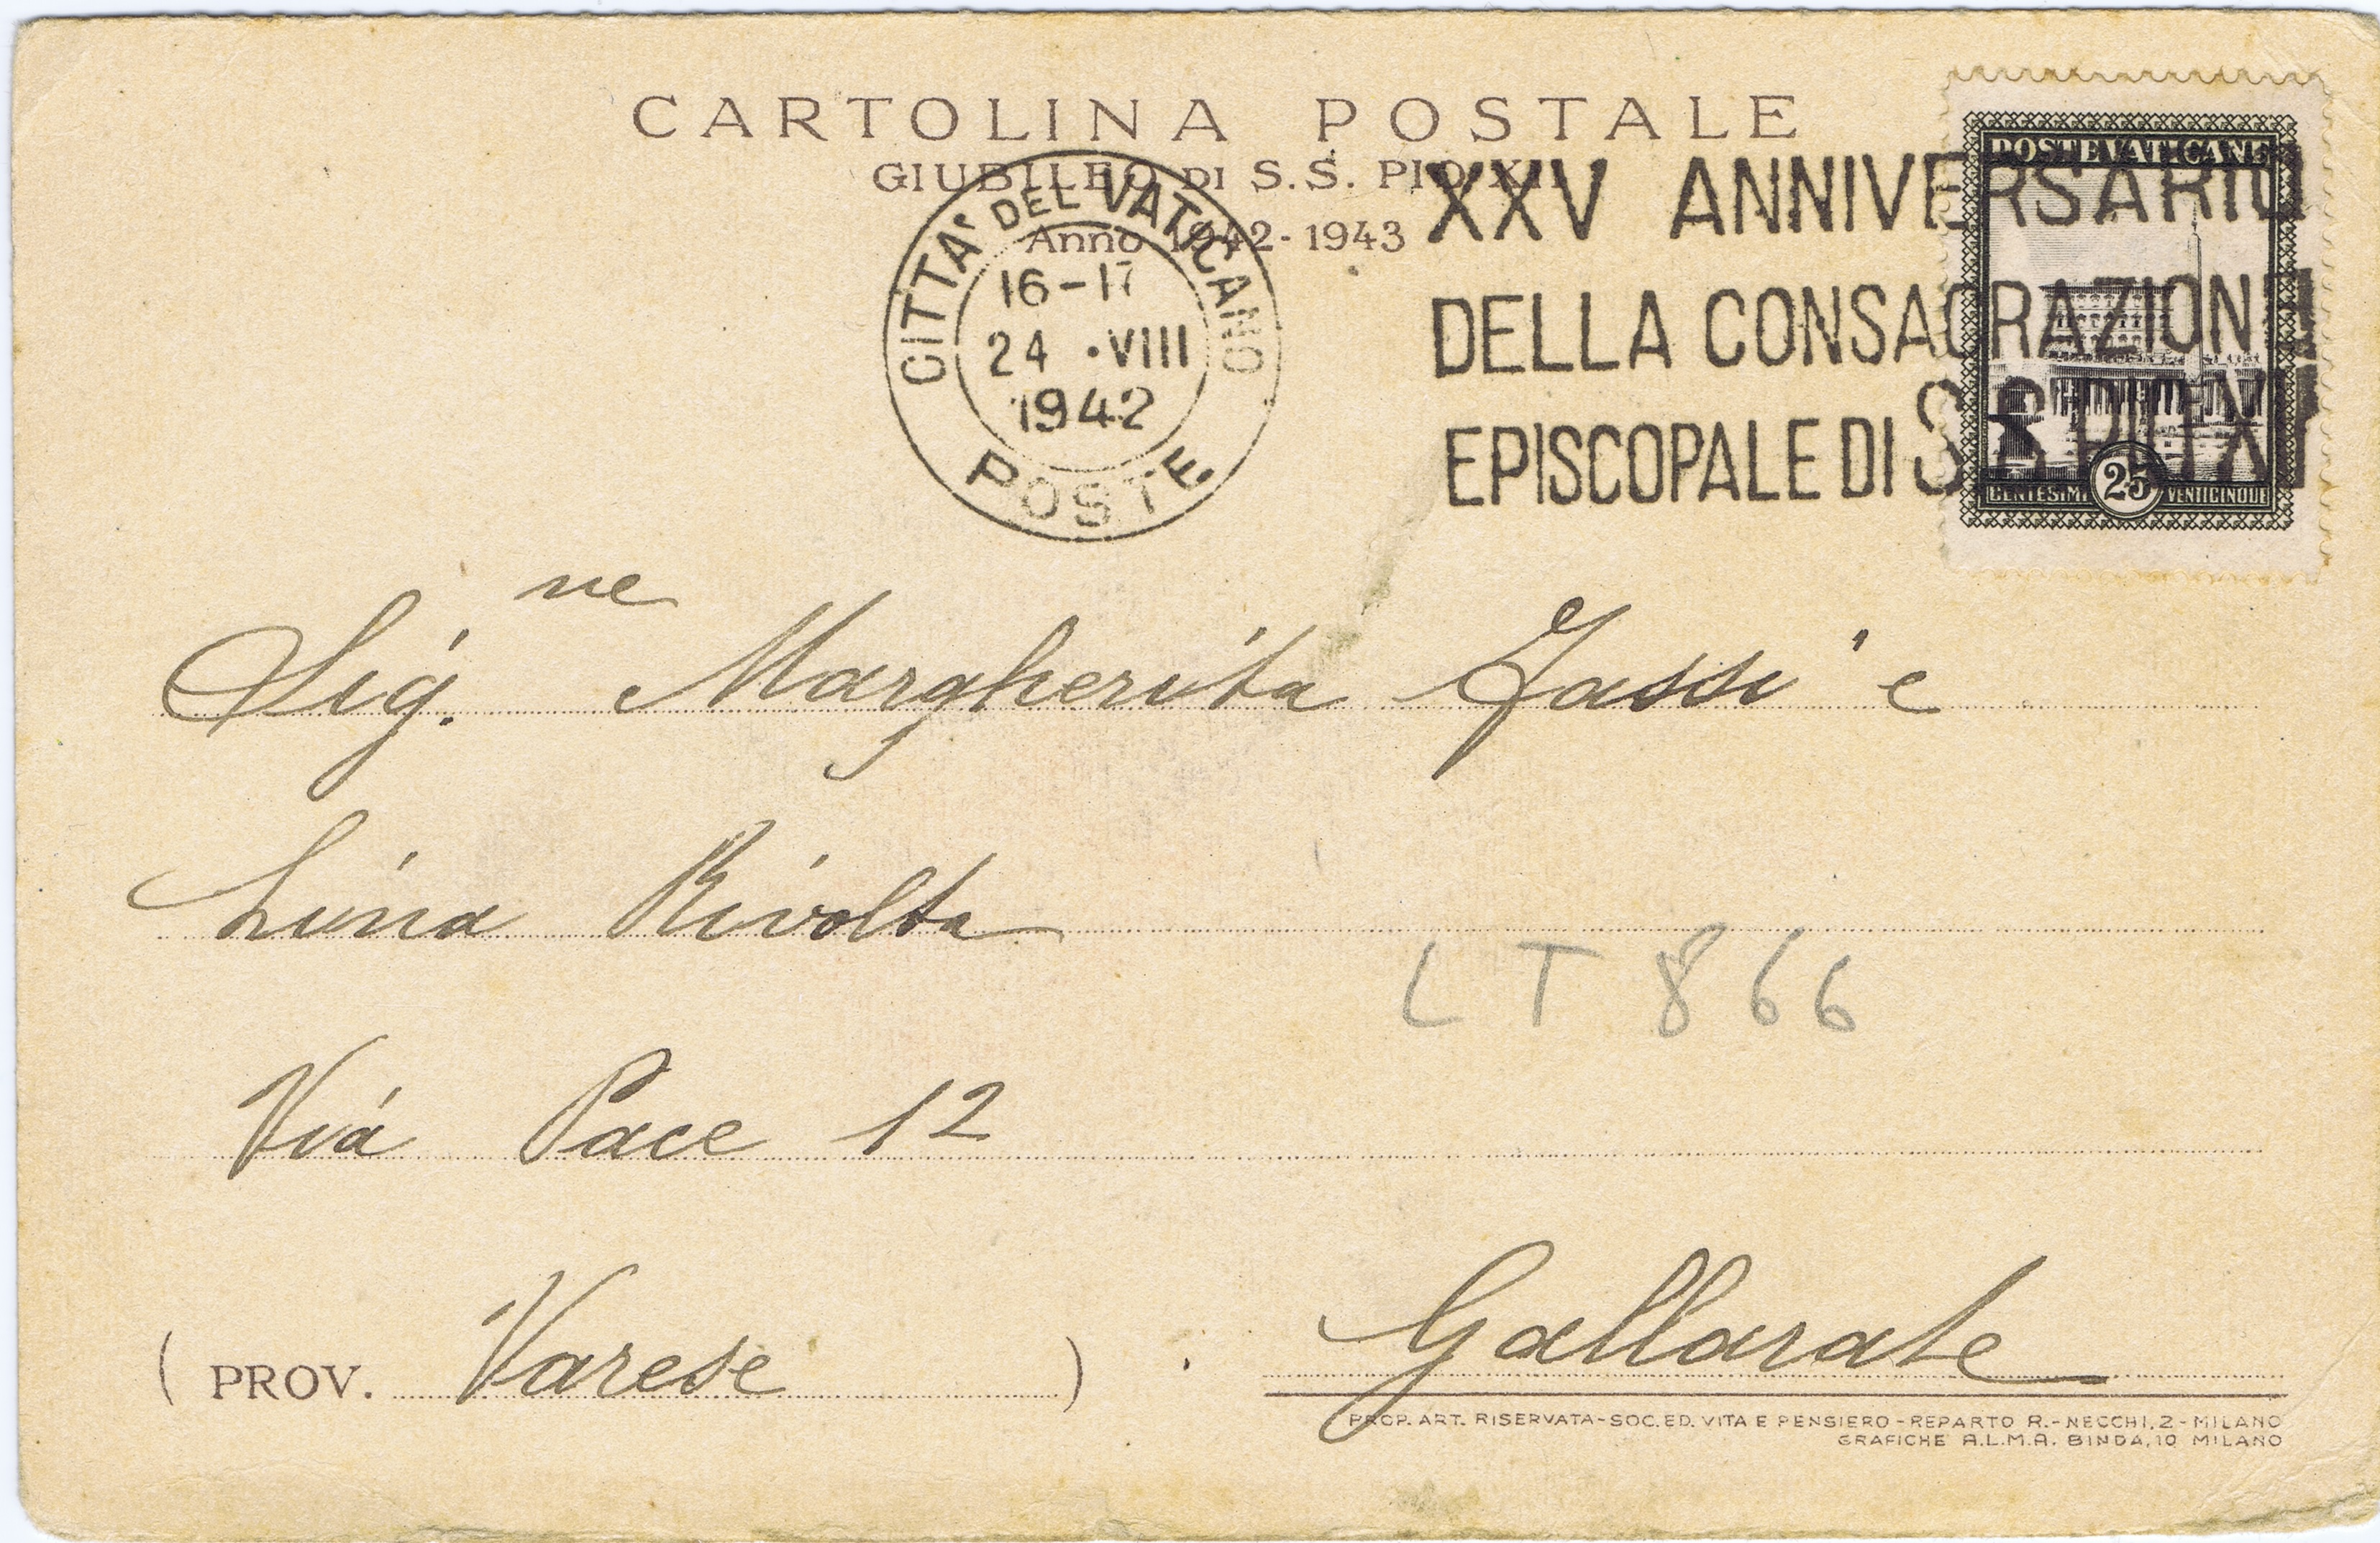 CARTOLINA POSTALE
GIUBILEO DI S.S. PIO XII
Anno 1942-1943
CITTA' DEL VATICANO
16-17
24 · VIII
1942
POSTE
XXV ANNIVERSARIO
DELLA CONSACRAZIONE
EPISCOPALE DI S.S. PIO XII
POSTE VATICANE
CENTESIMI 25 VENTICINQUE
Sig.ne Margherita Jassi e
Lina Rivolta
LT 866
Via Pace 12
(PROV. Varese)
Gallarate
PROP. ART. RISERVATA-SOC. ED. VITA E PENSIERO-REPARTO R.-NECCHI, 2-MILANO
GRAFICHE A.L.M.A. BINDA, 10 MILANO